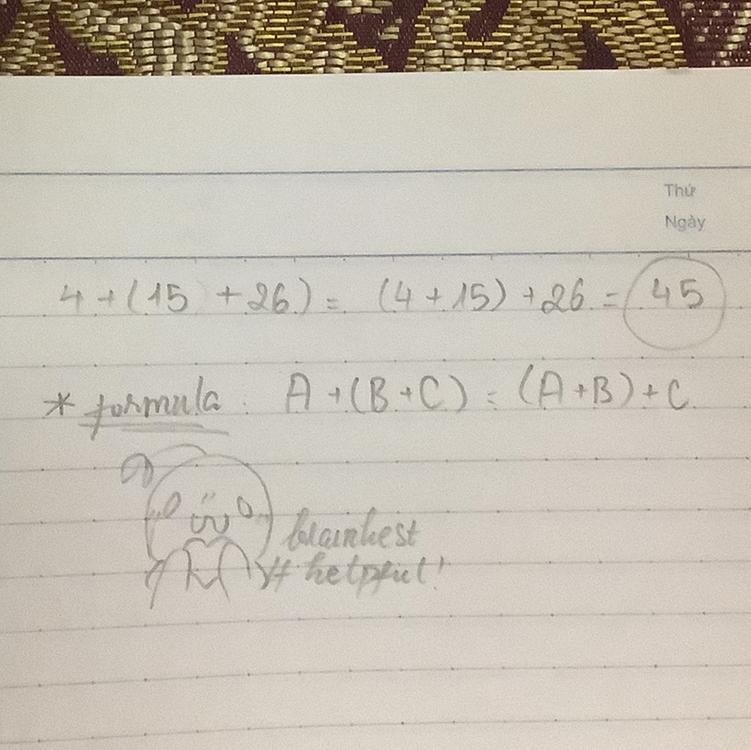 Thứ
Ngày
4 + (15 + 26) = (4 + 15) + 26 = 45
* formula : A + (B + C) = (A + B) + C
brainliest
# helpful!